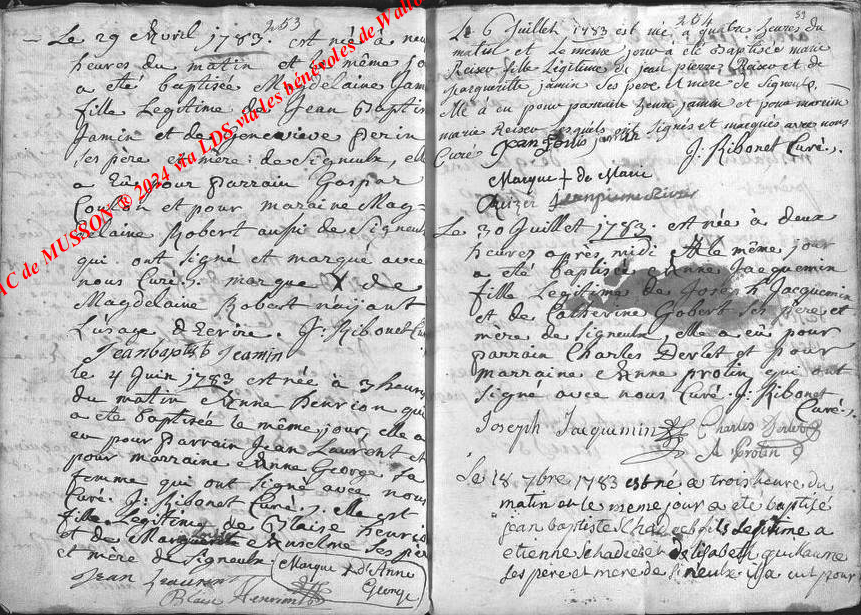 253
Le 29 Avril 1783. est née à neuf
heures du matin et le même jo
a été baptisée Magdelaine Jam
fille Legitime de Jean Baptis
Jamin et de Genevieve Perin
ses pere et mère : de Signeulx, elle
a Eû pour parrain Gaspar
Coulon et pour maraine Mag-
delaine Robert aussi de Signeul
qui ont signé et marqué avec
nous Curé J. marque X de
Magdelaine Robert naijant
L'usage d'Ecrire. J. Ribonet Cu
Jeanbaptiste Jeamin
le 4 Juin 1783 est née à 3 heures
du matin Anne henrion qui
a été baptisée le même jour, elle a
eu pour parrain Jean Laurent et
pour marraine Anne George sa
femme qui ont signé avec nous
Curé. J. Ribonet Curé. Elle est
fille Legitime de Blaise henrio
et de Marguerite Anselme ses pe
et mère de Signeulx. Marque + d'Anne
George
Jean Laurent
Blaise Henrion
254
59
Le 6 Juillet 1783 est née a quatre heures du
matin et Le meme jour a été Baptisée marie
Reiser fille Legitime de jean pierre Reiser et de
marguerite jamin ses pere et mere de Signeulx,
elle à eu pour parrain henri jamin et pour marrine
marie Reiser lesquels ont signés et marqués avec nous
Curé jamin J. Ribonet Curé.
Marque + de Marie
Reizer Jeanpierre
Le 30 Juillet 1783. est née à deux
heures après midi et le même jour
a été baptisée Anne Jacquemin
fille Legitime de Joseph Jacquemin
et de Catherine Gobert ses père et
mère de Signeulx, elle a eû pour
parrain Charles Derlet et pour
marraine Anne protin qui ont
signé avec nous Curé. J. Ribonet
Curé.
Joseph Jacquemin Charles Derlet
A Protin
Le 18 7bre 1783 est né a trois heure du
matin et le meme jour a ete baptisé
jean baptiste Schadeck fils Legitime a
etienne Schadeck delisabeth quillaume
ses père et mere de Signeulx il a eut pour
AC de MUSSON ® 2024 via LDS via les bénévoles de Wallo